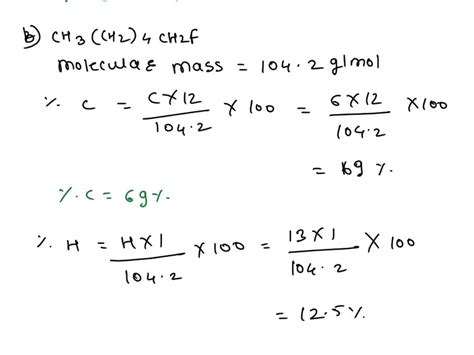 b) CH3(CH2)4CH2f
molecular mass = 104.2 g/mol
% C = C×12/104.2 × 100 = 6×12/104.2 ×100
= 69 %.
%.C = 69%.
% H = H×1/104.2 ×100 = 13×1/104.2 × 100
= 12.5%